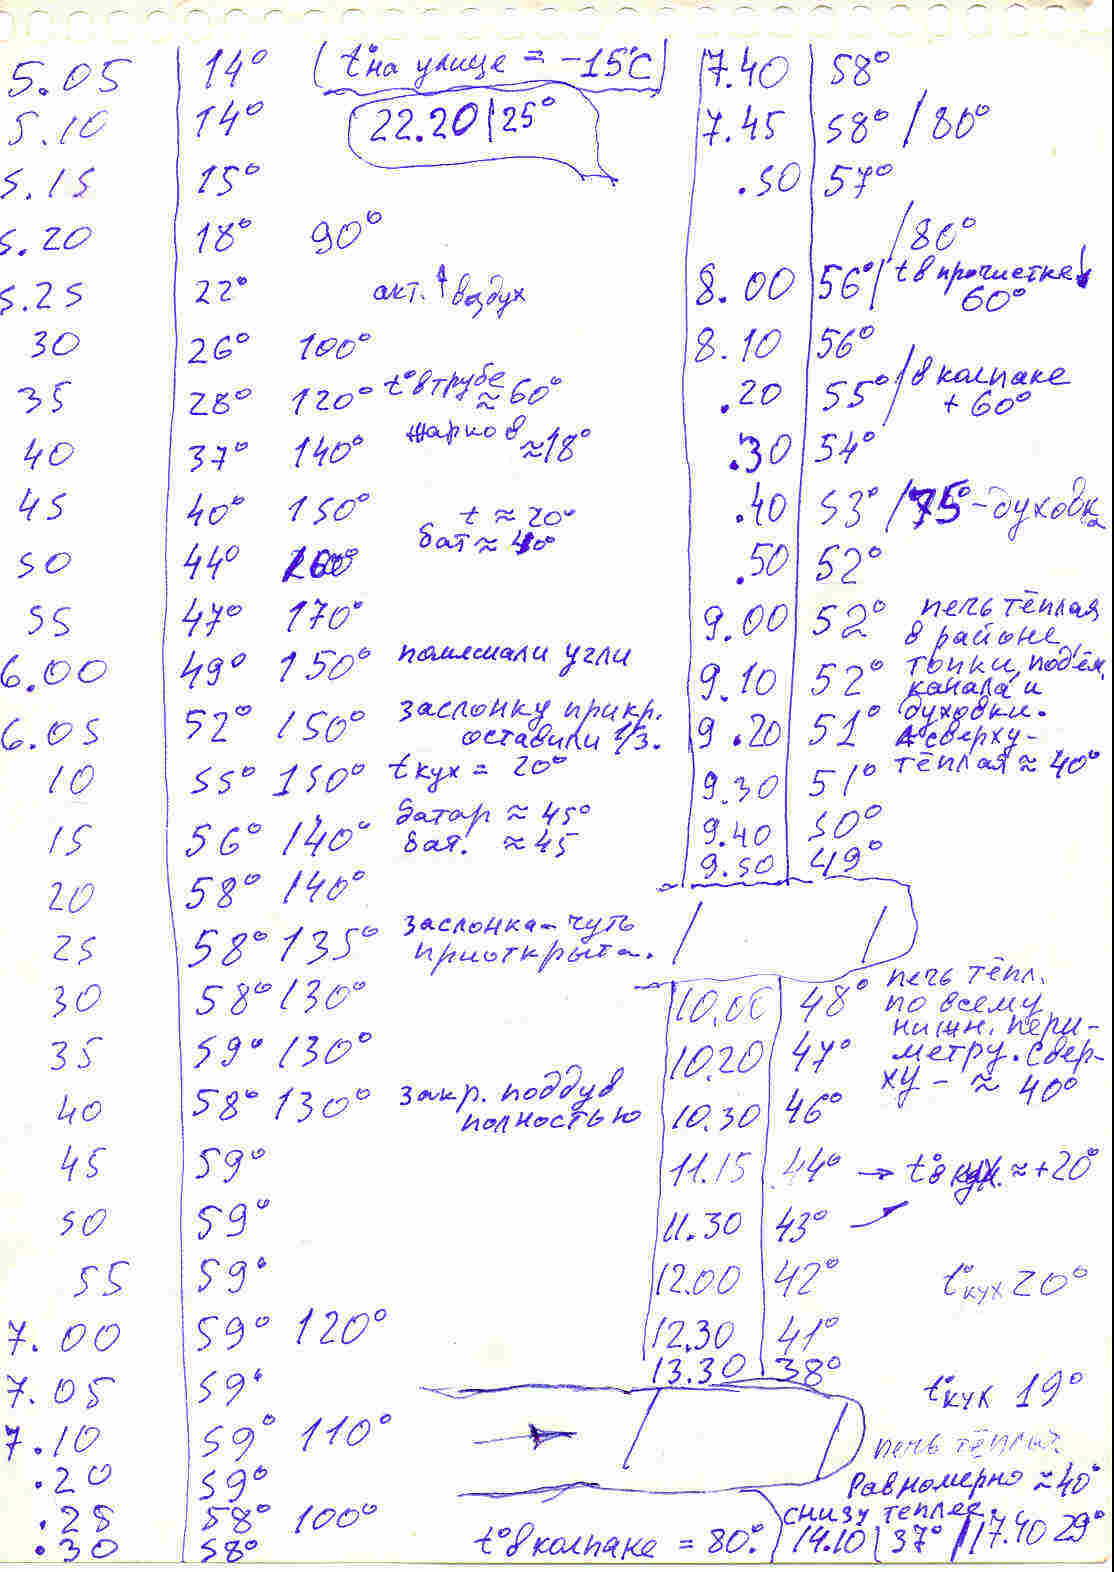 5.05 14° (t° на улице = -15°C)
5.10 14° 22.20 | 25°
5.15 15°
5.20 18° 90°
5.25 22° акт. ↑ воздух
30 26° 100°
35 28° 120° t° в трубе ≈ 60°
40 37° 140° жарко в ≈18°
45 40° 150° t ≈ 20°
бат ≈ 40°
50 44° 160°
55 47° 170°
6.00 49° 150° помешали угли
6.05 52° 150° заслонку прикр.
оставили 1/3.
10 55° 150° t кух = 20°
15 56° 140° батар ≈ 45°
бат. ≈ 45
20 58° 140°
25 58° 135° заслонка чуть
приоткрыта.
30 58° 130°
35 59° 130°
40 58° 130° закр. поддув
полностью
45 59°
50 59°
55 59°
7.00 59° 120°
7.05 59°
7.10 59° 110° →
.20 59°
.25 58° 100°
.30 58° t° в колпаке = 80°.
7.40 58°
7.45 58° / 80°
.50 57°
/ 80°
8.00 56° / t в прочистке
60°
8.10 56°
.20 55° / в колпаке
+ 60°
.30 54°
.40 53° / 75° - духовка
.50 52°
9.00 52° печь тёплая
в районе
9.10 52° топки, подъём.
канала и
9.20 51° духовки.
А сверху-
9.30 51° тёплая ≈ 40°
9.40 50°
9.50 49°
10.00 48° печь тёпл.
по всему
нижн. пери-
10.20 47° метру. Свер-
ху - ≈ 40°
10.30 46°
11.15 44° → t° в кух. ≈ +20°
11.30 43°
12.00 42° t° кух 20°
12.30 41°
13.30 38° t° кух 19°
печь тёплая.
Равномерно ≈ 40°
снизу теплее.
14.10 | 37° / 17.40 29°